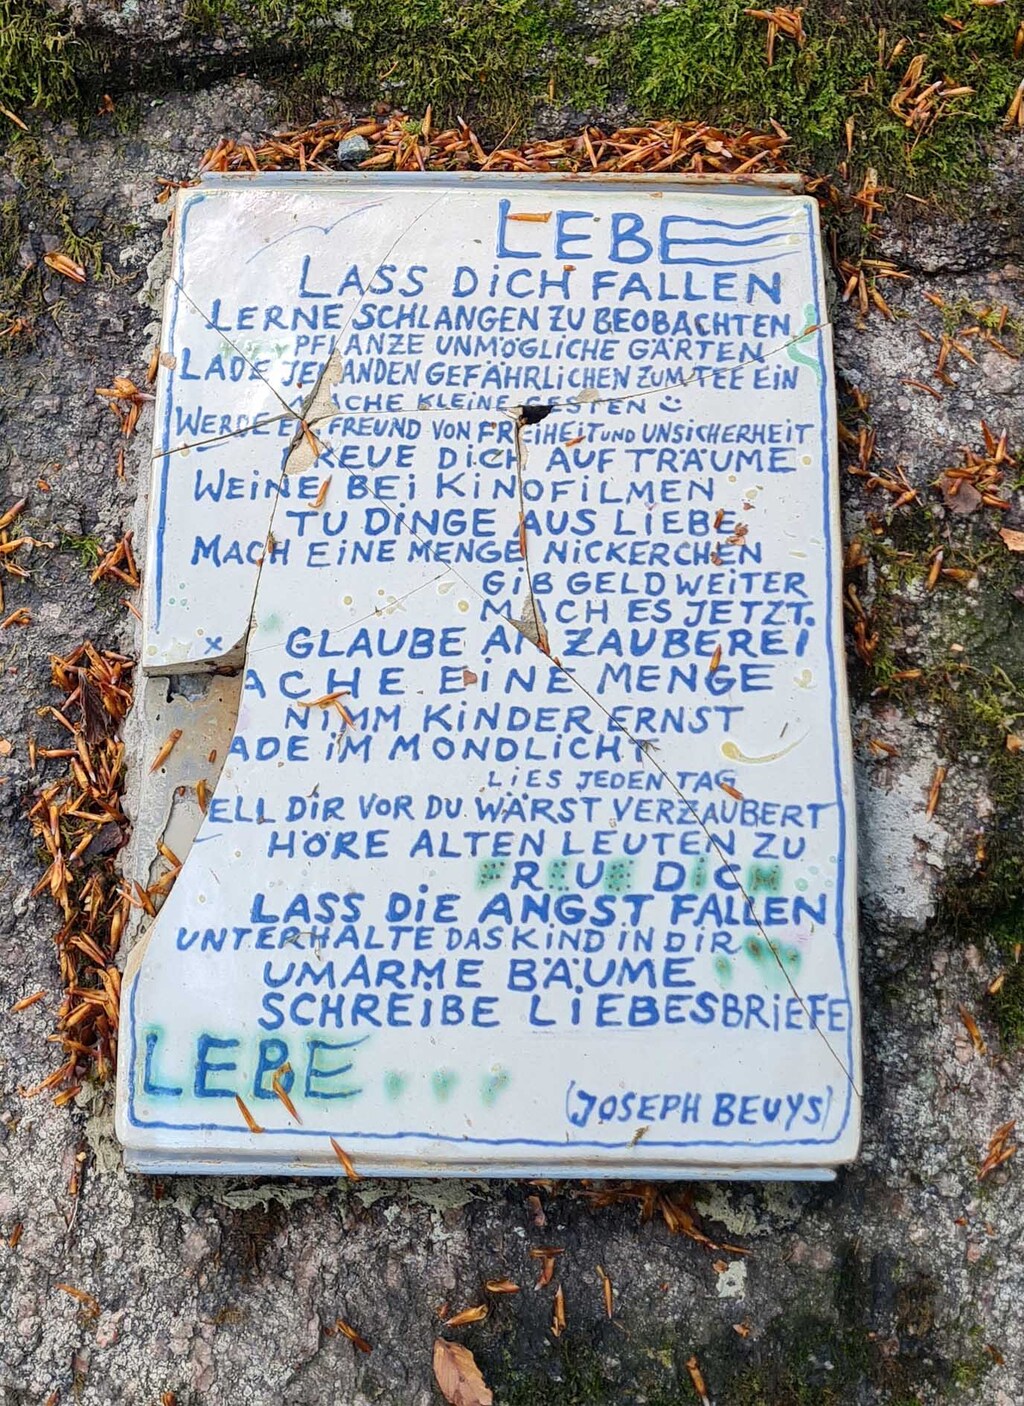 LEBE
LASS DiCH FALLEN
LERNE SCHLANGEN ZU BEOBACHTEN
PFLANZE UNMÖGLICHE GÄRTEN
LADE JEMANDEN GEFÄHRLICHEN ZUM TEE EiN
MACHE KLEINE GESTEN
WERDE EIN FREUND VON FREiHEiT UND UNSiCHERHEiT
FREUE DiCH AUF TRÄUME
WEiNE BEi KiNOFiLMEN
TU DiNGE AUS LiEBE
MACH EiNE MENGE NiCKERCHEN
GiB GELD WEiTER
MACH ES JETZT.
GLAUBE AN ZAUBEREi
ACHE EiNE MENGE
NiMM KiNDER ERNST
ADE iM MONDLiCHT
LiES JEDEN TAG
ELL DiR VOR DU WÄRST VERZAUBERT
HÖRE ALTEN LEUTEN ZU
FREUE DiCH
LASS DiE ANGST FALLEN
UNTERHALTE DAS KiND iN DiR
UMARME BÄUME
SCHREiBE LiEBESBRiEFE
LEBE...
(JOSEPH BEUYS)